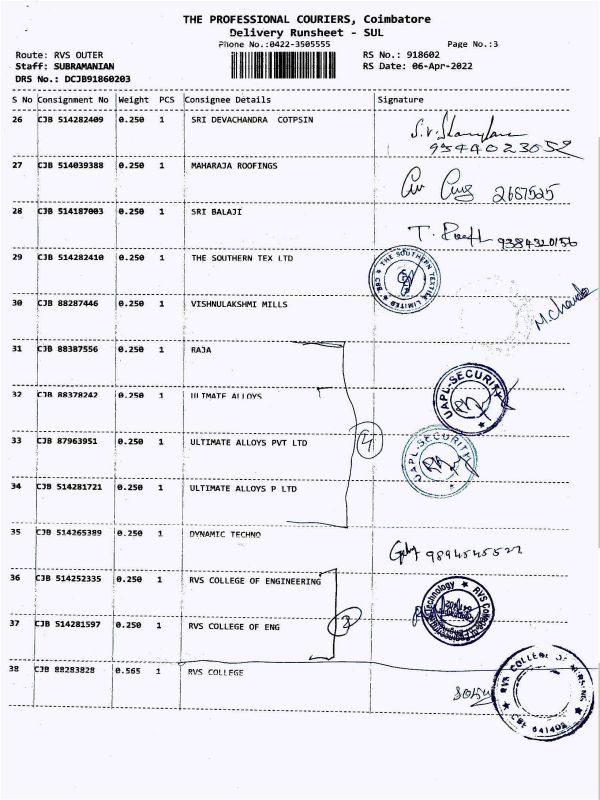 THE PROFESSIONAL COURIERS, Coimbatore
Delivery Runsheet - SUL
Phone No.:0422-3505555 Page No.:3
Route: RVS OUTER RS No.: 918602
Staff: SUBRAMANIAN RS Date: 06-Apr-2022
DRS No.: DCJB91860203
S No Consignment No Weight PCS Consignee Details Signature
26 CJB 514282409 0.250 1 SRI DEVACHANDRA COTPSIN
27 CJB 514039388 0.250 1 MAHARAJA ROOFINGS 2687525
28 CJB 514187003 0.250 1 SRI BALAJI 9384320156
29 CJB 514282410 0.250 1 THE SOUTHERN TEX LTD THE SOUTHERN TEXTILE LIMITED
30 CJB 88287446 0.250 1 VISHNULAKSHMI MILLS M.Chandra
31 CJB 88387556 0.250 1 RAJA
32 CJB 88378242 0.250 1 ULTMATE ALLOYS UAPL-SECURITY
33 CJB 87963951 0.250 1 ULTIMATE ALLOYS PVT LTD 4 UAPL-SECURITY
34 CJB 514281721 0.250 1 ULTIMATE ALLOYS P LTD
35 CJB 514265389 0.250 1 DYNAMIC TECHNO
36 CJB 514252335 0.250 1 RVS COLLEGE OF ENGINEERING
37 CJB 514281597 0.250 1 RVS COLLEGE OF ENG 2
38 CJB 88283828 0.565 1 RVS COLLEGE RVS COLLEGE OF NURSING CBE 641402